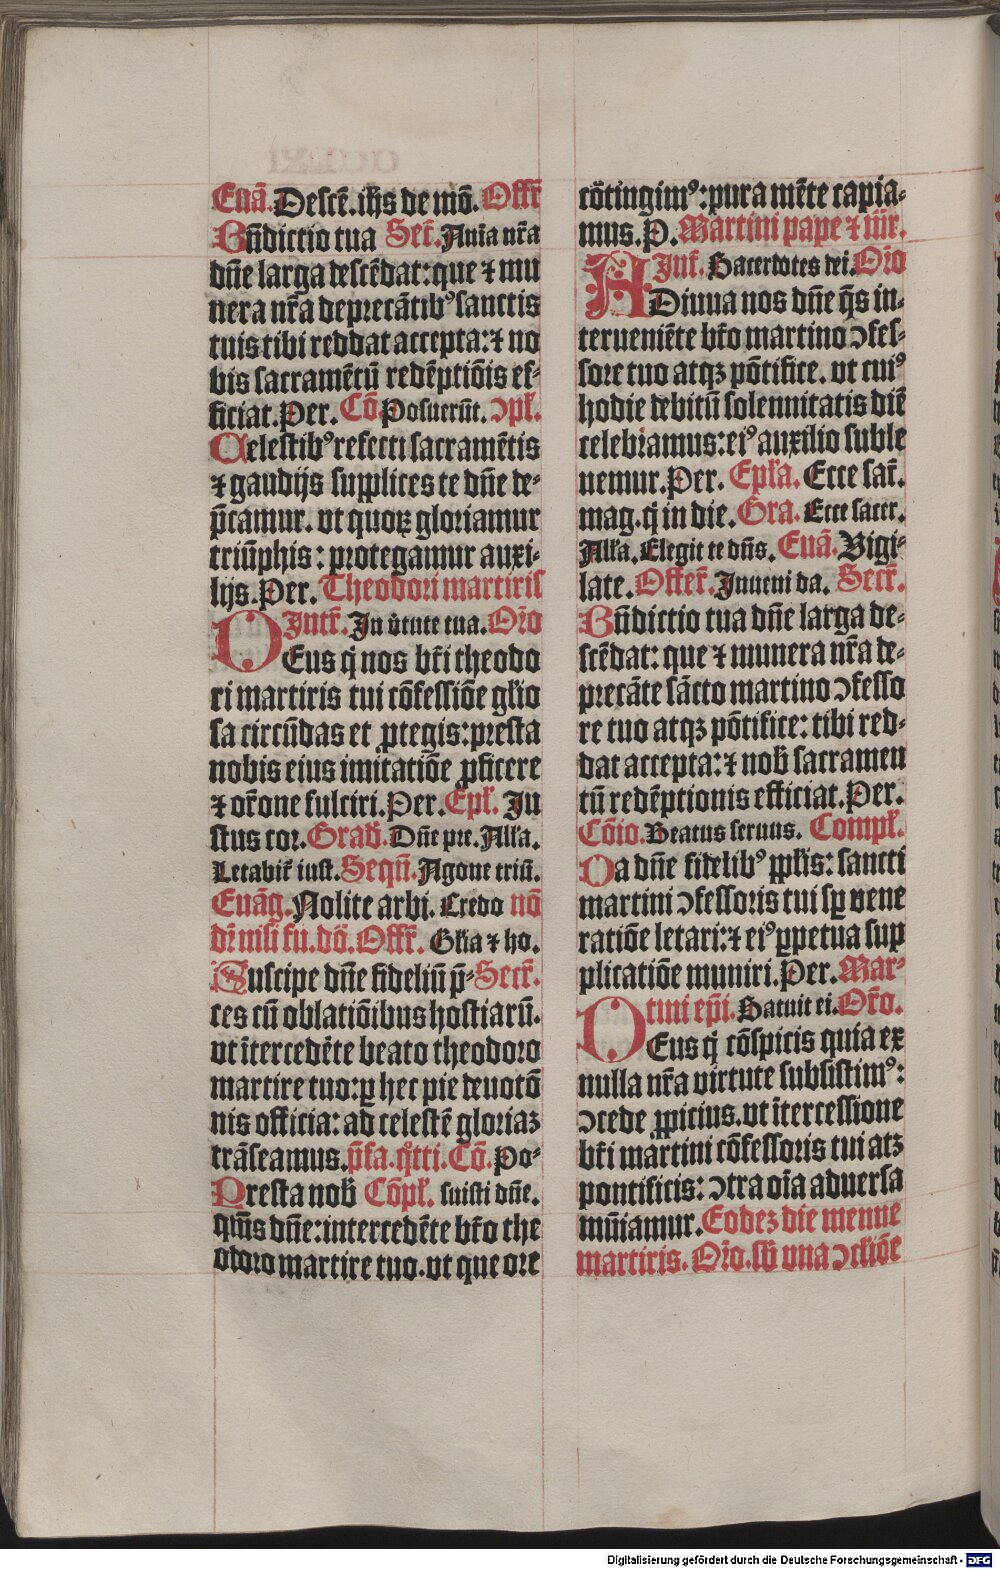 Euā. Descē. ihs de mō. Offr̄
Bn̄dictio tua Secr̄. Anīa nr̄a
dn̄e larga descēdat: que ⁊ mu
nera nr̄a deprecātibꝰ sanctis
tuis tibi reddat accepta: ⁊ no
bis sacramētū redēptiōis ef⸗
ficiat. Per. Cō. Posuerūt. ꝯpl̄.
Celestibꝰ refecti sacramētis
⁊ gaudijs supplices te dn̄e de⸗
p̄camur. vt quoꝝ gloriamur
triūphis: protegamur auxi⸗
lijs. Per. Theodori martiris
Intr̄. In v̄tute tua. Or̄o
DEus q̇ nos bt̄i theodo
ri martiris tui cōfessiōe gl̄io
sa circūdas et ꝓtegis: presta
nobis eius imitatiōe ꝓficere
⁊ or̄one fulciri. Per. Epl̄. Iu
stus cor. Grad̄. Dn̄e pre. All̄a.
Letabit̄ iust. Sequē. Agone triū.
Euāg. Nolite arbi. Credo nō
dr̄ nisi fu. dō. Offr̄. Gl̄ia ⁊ ho.
Suscipe dn̄e fideliū p̄⸗ Secr̄.
ces cū oblatiōibus hostiarū.
vt ītercedēte beato theodoro
martire tuo: ꝑ hec pie deuotō
nis officia: ad celestē gloriaꝫ
trāseamus. p̄fa. q̊tti. Cō. Po⸗
Presta nob̄ Cōpl̄. suisti dn̄e.
qm̄s dn̄e: intercedēte bt̄o the
odoro martire tuo. vt que ore
cōtingimꝰ: pura mēte capia⸗
mus. P. Martini pape ⁊ m̄r.
Intr̄. Sacerdotes dei. Or̄o
ADiuua nos dn̄e q̄s in⸗
terueniēte bt̄o martino ꝯfes⸗
sore tuo atqꝫ pōtifice. vt cuiꝰ
hodie debitū solennitatis diē
celebramus: eiꝰ auxilio suble
uemur. Per. Epl̄a. Ecce sac̄.
mag. q̇ in die. Gra. Ecce sacer.
All̄a. Elegit te dn̄s. Euā. Vigi⸗
late. Offer̄. Inueni da. Secr̄.
Bn̄dictio tua dn̄e larga de⸗
scēdat: que ⁊ munera nr̄a de⸗
precāte sācto martino ꝯfesso
re tuo atqꝫ pōtifice: tibi red⸗
dat accepta: ⁊ nob̄ sacramen
tū redēptionis efficiat. Per.
Cōio. Beatus seruus. Compl̄.
Da dn̄e fidelibꝰ ppl̄is: sancti
martini ꝯfessoris tui sꝑ vene
ratiōe letari: ⁊ eiꝰ ꝑpetua sup
plicatiōe muniri. Per. Mar⸗
tini ep̄i. Statuit ei. Or̄o.
DEus q̇ cōspicis quia ex
nulla nr̄a virtute subsistimꝰ:
ꝯcede ꝓpicius. vt ītercessione
bt̄i martini cōfessoris tui atꝫ
pontificis: ꝯtra oīa aduersa
mūiamur. Eodeꝫ die menne
martiris. Or̄o. sb̄ vna ꝯcl̄iōe
Digitalisierung gefördert durch die Deutsche Forschungsgemeinschaft - DFG